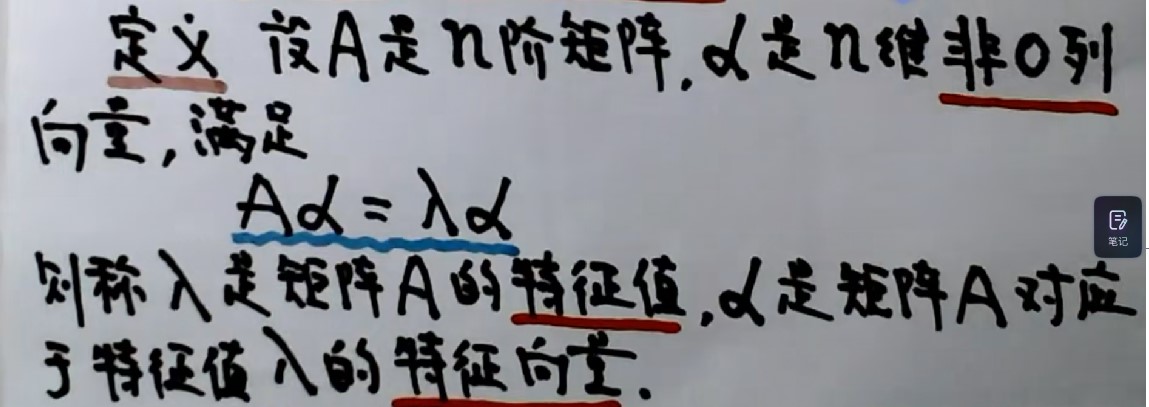 定义 设A是n阶矩阵,α是n维非0列
向量,满足
Aα=λα
则称λ是矩阵A的特征值,α是矩阵A对应
于特征值λ的特征向量.
笔记